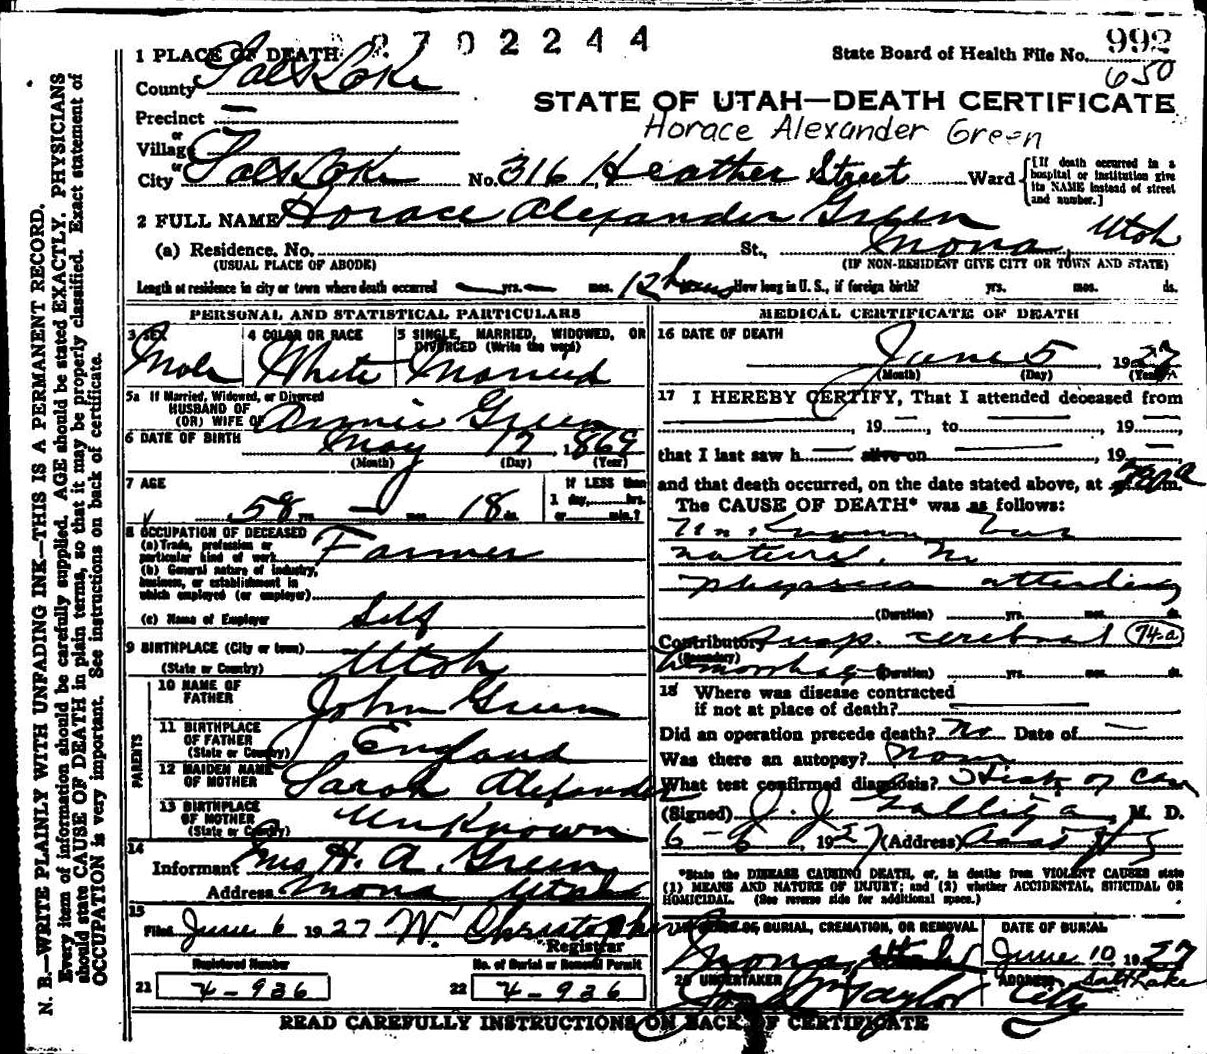 2702244
State Board of Health File No. 992
650
1 PLACE OF DEATH
County Salt Lake
STATE OF UTAH—DEATH CERTIFICATE
Horace Alexander Green
Precinct —
or
Village
or
City Salt Lake No. 316 Heather Street Ward
[If death occurred in a hospital or institution give its NAME instead of street and number.]
2 FULL NAME Horace Alexander Green
(a) Residence. No. St., Mona, Utah
(USUAL PLACE OF ABODE) (IF NON-RESIDENT GIVE CITY OR TOWN AND STATE)
Length of residence in city or town where death occurred — yrs. — mos. 12 hours How long in U. S., if foreign birth? yrs. mos. ds.
PERSONAL AND STATISTICAL PARTICULARS
3 SEX Male
4 COLOR OR RACE White
5 SINGLE, MARRIED, WIDOWED, OR DIVORCED (Write the word) Married
5a If Married, Widowed, or Divorced
HUSBAND OF
(OR) WIFE OF Annie Green
6 DATE OF BIRTH May 17, 1869
(Month) (Day) (Year)
7 AGE 58 yrs. — mos. 18 ds.
IF LESS than
1 day, hrs.
or min.?
8 OCCUPATION OF DECEASED
(a) Trade, profession or
particular kind of work Farmer
(b) General nature of industry,
business, or establishment in
which employed (or employer)
(c) Name of Employer Self
9 BIRTHPLACE (City or town)
(State or Country) Utah
PARENTS
10 NAME OF
FATHER John Green
11 BIRTHPLACE
OF FATHER
(State or Country) England
12 MAIDEN NAME
OF MOTHER Sarah Alexander
13 BIRTHPLACE
OF MOTHER
(State or Country) Unknown
14
Informant Mrs H. A. Green
Address Mona Utah
15
Filed June 6 1927 W. Christopherson
Registrar
Registered Number
21 4-936
No. of Burial or Removal Permit
22 4-936
MEDICAL CERTIFICATE OF DEATH
16 DATE OF DEATH
June 5 1927
(Month) (Day) (Year)
17 I HEREBY CERTIFY, That I attended deceased from
—, 19—, to —, 19—,
that I last saw h— alive on —, 19—
and that death occurred, on the date stated above, at m.
The CAUSE OF DEATH* was as follows:
Unknown but
natural. No
physician attending
(Duration) yrs. mos. ds.
Contributory Susp. cerebral 74-a
(Secondary) hemorrhage (Duration) yrs. mos. ds.
18 Where was disease contracted
if not at place of death? —
Did an operation precede death? No Date of —
Was there an autopsy? None
What test confirmed diagnosis? of case
(Signed) J. J. M. D.
6-6, 1927 (Address)
*State the DISEASE CAUSING DEATH, or, in deaths from VIOLENT CAUSES state
(1) MEANS AND NATURE OF INJURY; and (2) whether ACCIDENTAL, SUICIDAL OR
HOMICIDAL. (See reverse side for additional space.)
19 PLACE OF BURIAL, CREMATION, OR REMOVAL Mona, Utah
DATE OF BURIAL June 10, 1927
20 UNDERTAKER Taylor
ADDRESS Salt Lake City
READ CAREFULLY INSTRUCTIONS ON BACK OF CERTIFICATE
N. B.—WRITE PLAINLY WITH UNFADING INK—THIS IS A PERMANENT RECORD.
Every item of information should be carefully supplied. AGE should be stated EXACTLY. PHYSICIANS
should state CAUSE OF DEATH in plain terms, so that it may be properly classified. Exact statement of
OCCUPATION is very important. See instructions on back of certificate.